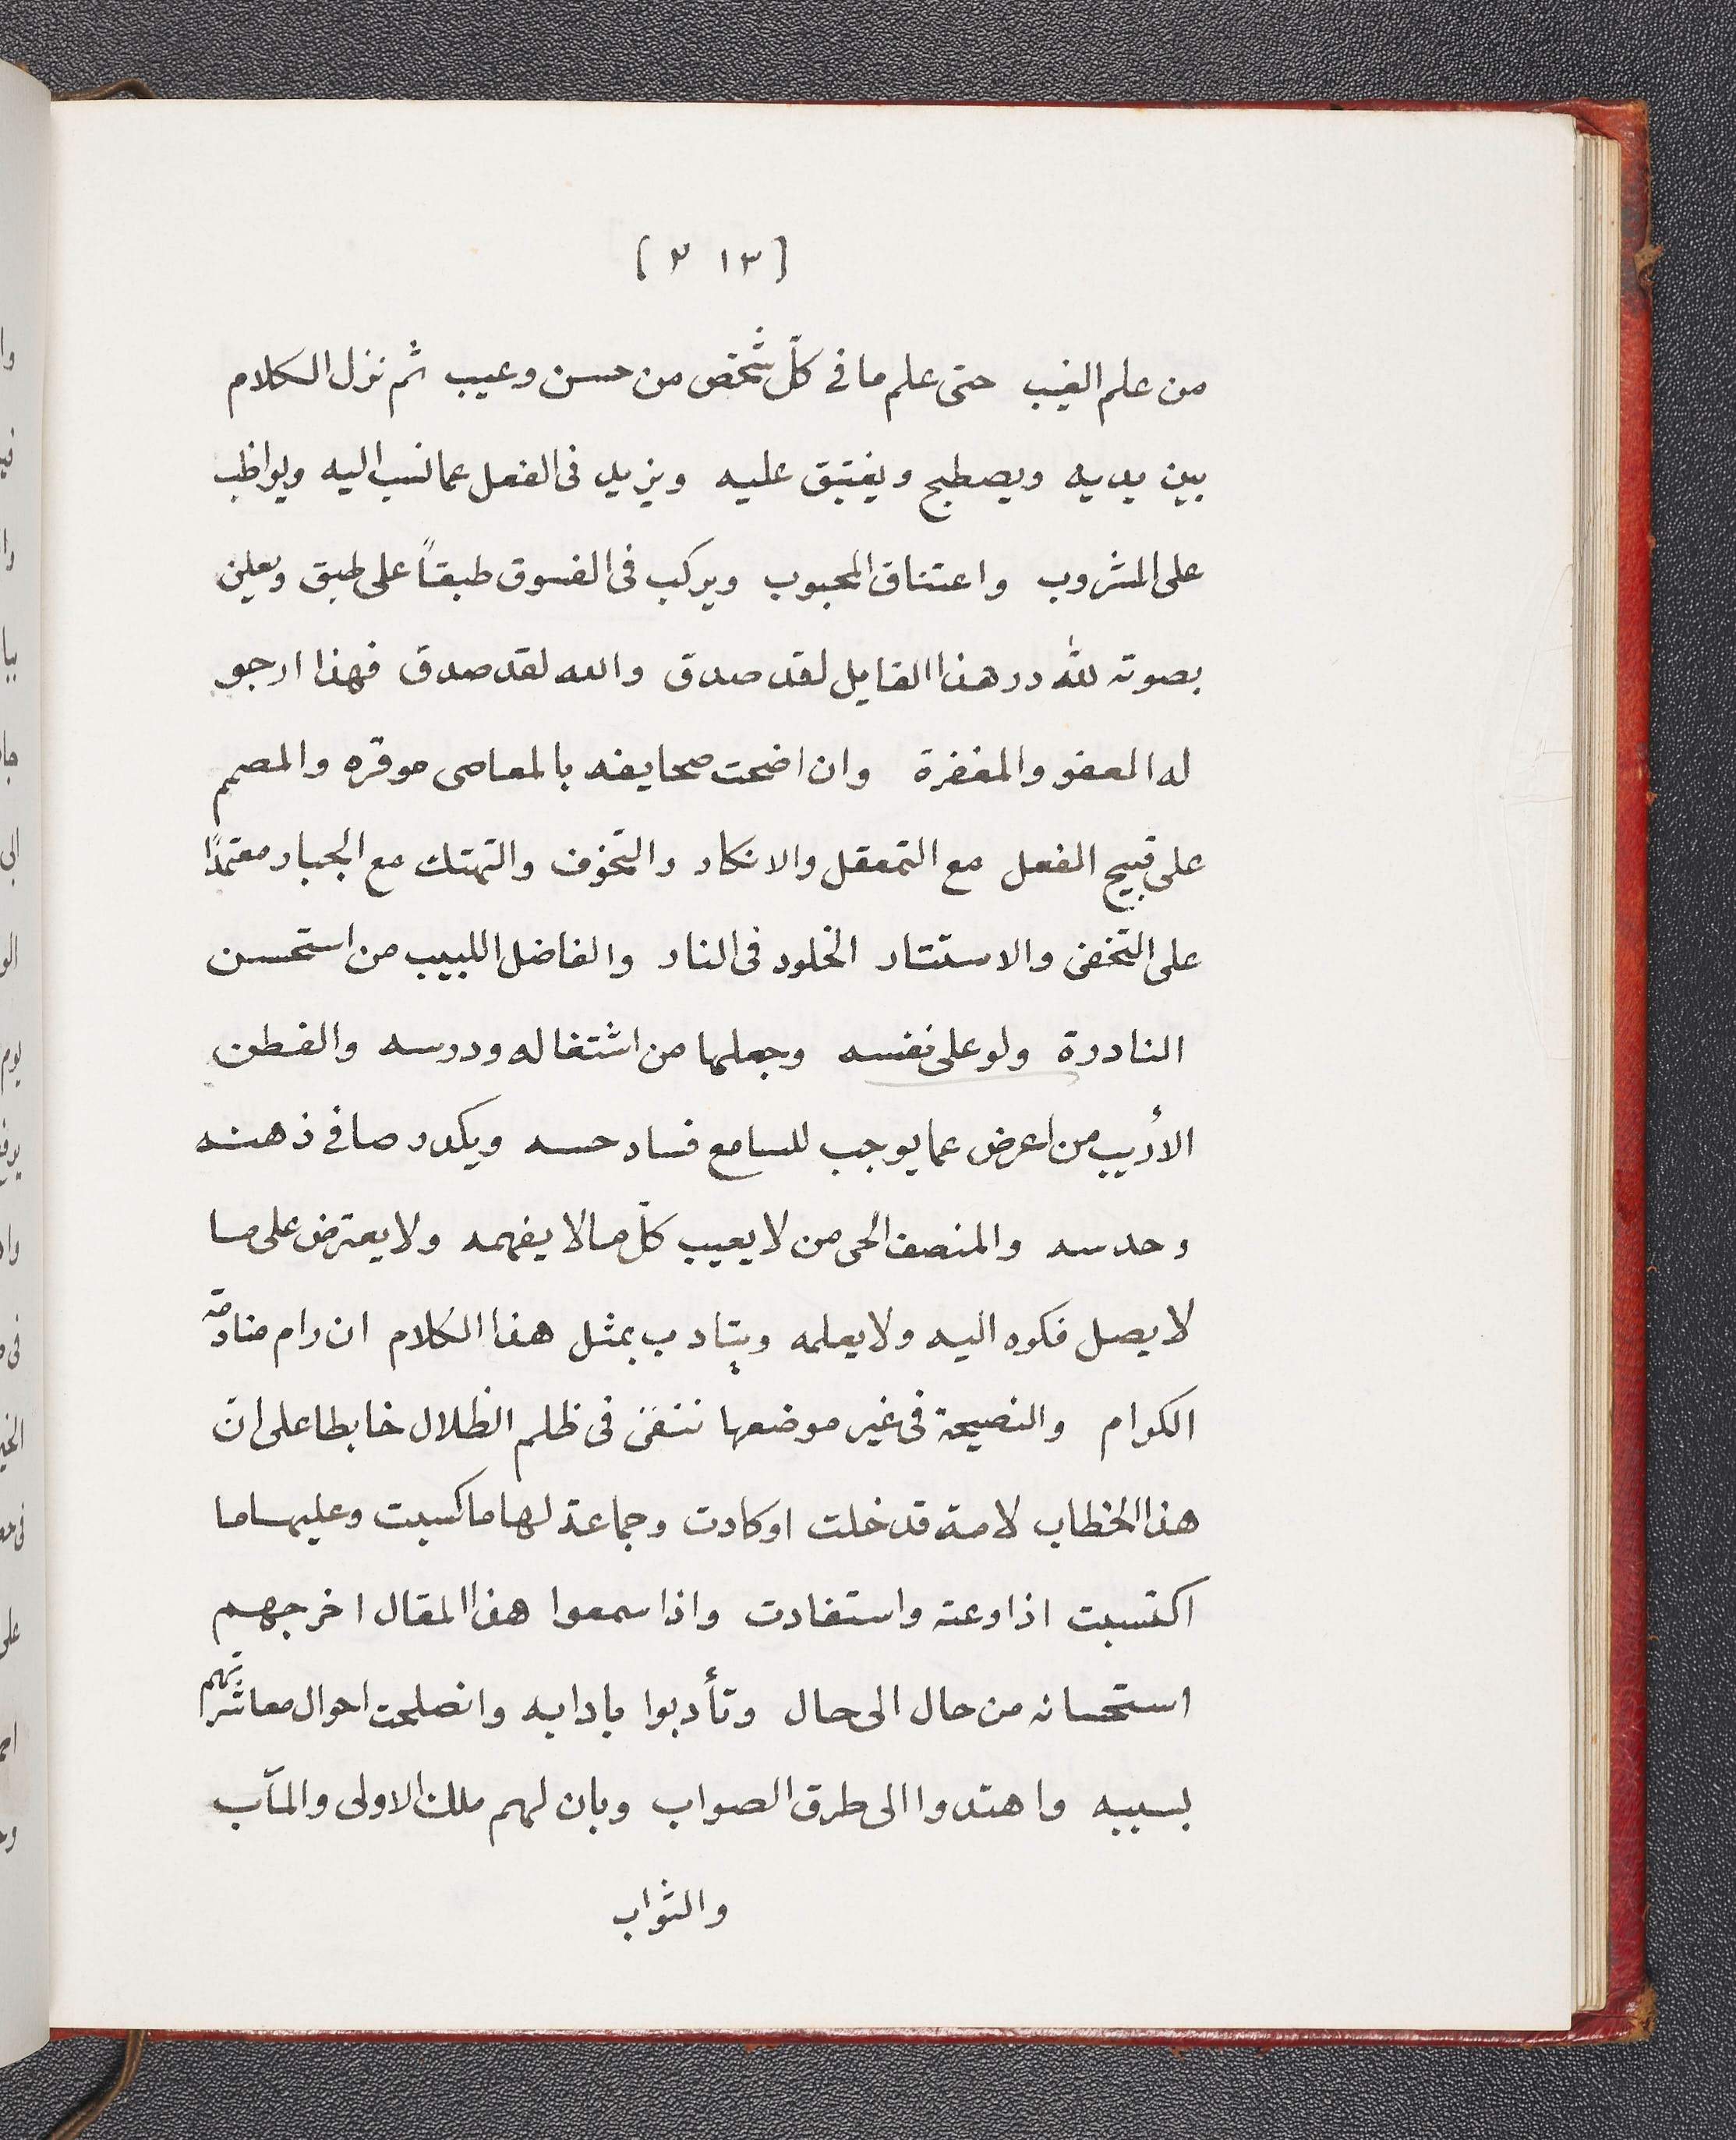 [١٣ ٢]
من علم الغيب حتى علم ما فى كلّ شخص من حسن وعيب ثم نزل الكلام
بين يديه ويصطبح ويغتبق عليه ويزيد فى الفعل عما نسب اليه ويواظب
على المشروب واعتناق المحبوب ويركب فى الفسوق طبقاً على طبق ويعلن
بصوته لله در هذا القايل لقد صدق والله لقد صدق فهذا ارجو
له العفو والمغفرة وان اضحت صحايفه بالمعاصى موقره والمصمم
على قبيح الفعل مع التمعقل والانكار والتخوف والتهتك مع الجبار معتمدًا
على التخفى والاستتار الخلود فى النار والفاضل اللبيب من استحسن
النادرة ولو على نفسه وجعلها من اشتغاله ودرسه والفطن
الأديب من اعرض عما يوجب للسامع فساد حسه ويكدر صافى ذهنه
وحدسه والمنصف الحى من لا يعيب كلّ ما لا يفهمه ولا يعترض على ما
لا يصل فكره اليه ولا يعلمه ويتادب بمثل هذا الكلام ان رام منادمة
الكرام والنصيحة فى غير موضعها ننفى فى ظلم الظلال خابطا على انّ
هذا الخطاب لامة قد خلت او كادت وجماعة لها ما كسبت وعليها ما
اكتسبت اذا وعته واستفادت واذا سمعوا هذا المقال اخرجهم
استحسانه من حال الى حال وتأدبوا بادابه وانصلحت احوال معاشراتهم
بسببه واهتدوا الى طرق الصواب وبان لهم ملك الاولى والمآب
والثواب